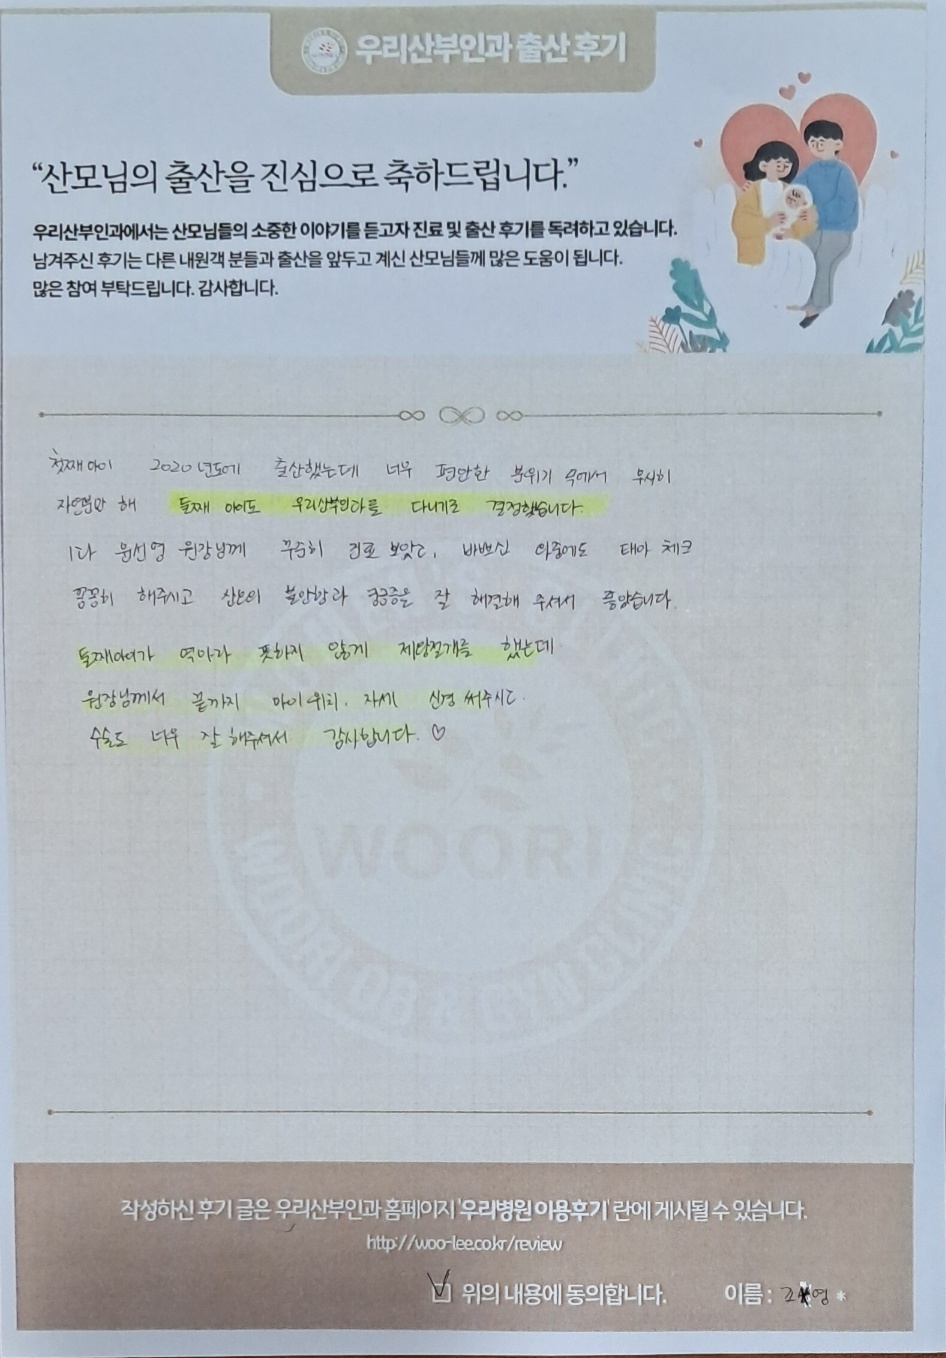 우리산부인과 출산 후기
“산모님의 출산을 진심으로 축하드립니다.”
우리산부인과에서는 산모님들의 소중한 이야기를 듣고자 진료 및 출산 후기를 독려하고 있습니다.
남겨주신 후기는 다른 내원객 분들과 출산을 앞두고 계신 산모님들께 많은 도움이 됩니다.
많은 참여 부탁드립니다. 감사합니다.
첫째아이 2020년도에 출산했는데 너무 편안한 분위기 속에서 무사히
자연분만 해 둘째 아이도 우리산부인과를 다니기로 결정했습니다.
1과 윤선영 원장님께 꾸준히 진료 보았고, 바쁘신 와중에도 태아 체크
꼼꼼히 해주시고 산모의 불안함과 궁금증을 잘 해결해 주셔서 좋았습니다.
둘째아이가 역아라 뜻하지 않게 제왕절개를 했는데
원장님께서 끝까지 아이위치, 자세 신경 써주시고
수술도 너무 잘 해주셔서 감사합니다. ♡
WOORI
WOORI OB & GYN CLINIC
작성하신 후기 글은 우리산부인과 홈페이지 '우리병원 이용후기' 란에 게시될 수 있습니다.
http://woo-lee.co.kr/review
위의 내용에 동의합니다. 이름 :